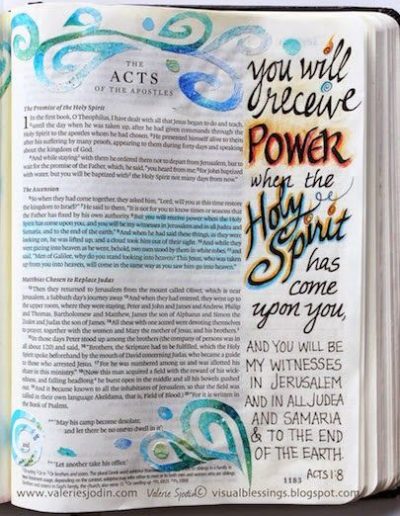 THE
ACTS
OF THE APOSTLES
The Promise of the Holy Spirit
1 In the first book, O Theophilus, I have dealt with all that Jesus began to do and teach,
until the day when he was taken up, after he had given commands through the Holy
Spirit to the apostles whom he had chosen. He presented himself alive to them
after his suffering by many proofs, appearing to them during forty days and speaking
about the kingdom of God.
And while staying with them he ordered them not to depart from Jerusalem, but to
wait for the promise of the Father, which, he said, "you heard from me; for John baptized
with water, but you will be baptized with the Holy Spirit not many days from now."
The Ascension
So when they had come together, they asked him, "Lord, will you at this time restore
the kingdom to Israel?" He said to them, "It is not for you to know times or seasons that
the Father has fixed by his own authority. But you will receive power when the Holy
Spirit has come upon you, and you will be my witnesses in Jerusalem and in all Judea and
Samaria, and to the end of the earth." And when he had said these things, as they were
looking on, he was lifted up, and a cloud took him out of their sight. And while they
were gazing into heaven as he went, behold, two men stood by them in white robes, and
said, "Men of Galilee, why do you stand looking into heaven? This Jesus, who was taken
up from you into heaven, will come in the same way as you saw him go into heaven."
Matthias Chosen to Replace Judas
Then they returned to Jerusalem from the mount called Olivet, which is near
Jerusalem, a Sabbath day's journey away. And when they had entered, they went up to
the upper room, where they were staying, Peter and John and James and Andrew, Philip
and Thomas, Bartholomew and Matthew, James the son of Alphaeus and Simon the
Zealot and Judas the son of James. All these with one accord were devoting themselves
to prayer, together with the women and Mary the mother of Jesus, and his brothers.
In those days Peter stood up among the brothers (the company of persons was in
all about 120) and said, "Brothers, the Scripture had to be fulfilled, which the Holy
Spirit spoke beforehand by the mouth of David concerning Judas, who became a guide
to those who arrested Jesus. For he was numbered among us and was allotted his
share in this ministry." (Now this man acquired a field with the reward of his wick-
edness, and falling headlong he burst open in the middle and all his bowels gushed
out. And it became known to all the inhabitants of Jerusalem, so that the field was
called in their own language Akeldama, that is, Field of Blood.) "For it is written in
the Book of Psalms,
"'May his camp become desolate,
and let there be no one to dwell in it';
"'Let another take his office.'
1183
you will
receive
POWER
when the
Holy
Spirit
has
come
upon you,
AND YOU WILL BE
MY WITNESSES
IN JERUSALEM
AND IN ALL JUDEA
AND SAMARIA
& TO THE END
OF THE EARTH
ACTS 1:8
www.valeriesjodin.com Valerie Sjodin © visualblessings.blogspot.com